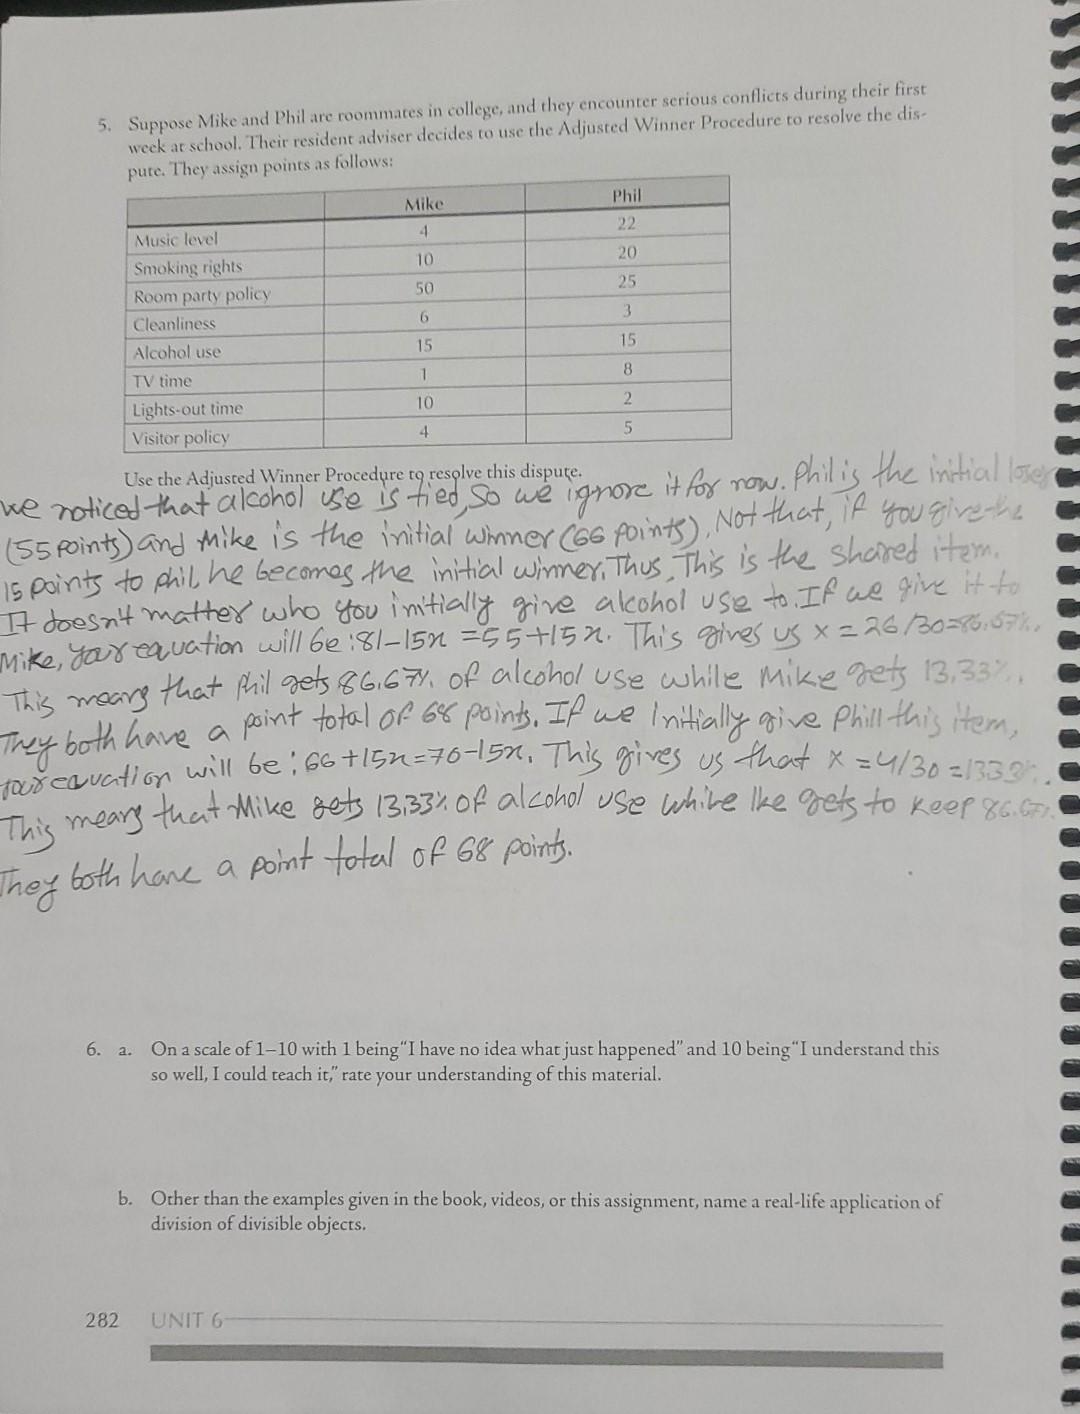 5. Suppose Mike and Phil are roommates in college, and they encounter serious conflicts during their first
week at school. Their resident adviser decides to use the Adjusted Winner Procedure to resolve the dis-
pute. They assign points as follows:
Mike Phil
Music level 4 22
Smoking rights 10 20
Room party policy 50 25
Cleanliness 6 3
Alcohol use 15 15
TV time 1 8
Lights-out time 10 2
Visitor policy 4 5
Use the Adjusted Winner Procedure to resolve this dispute.
we noticed that alcohol use is tied, so we ignore it for now. Phil is the initial loser
(55 points) and Mike is the initial winner (66 points). Not that, if you give the
15 points to phil, he becomes the initial winner. Thus, This is the shared item.
It doesn't matter who you initially give alcohol use to. If we give it to
Mike, your equation will be: 81-15x = 55+15x. This gives us x = 26/30=86.67%.
This means that Phil gets 86.67% of alcohol use while Mike gets 13.33%.
They both have a point total of 68 points. If we Initially give Phill this item,
your equation will be: 66+15x=70-15x. This gives us that x = 4/30 =1333%.
This means that Mike gets 13,33% of alcohol use while Ike gets to keep 86.67%.
They both have a point total of 68 points.
6. a. On a scale of 1–10 with 1 being "I have no idea what just happened" and 10 being "I understand this
so well, I could teach it," rate your understanding of this material.
b. Other than the examples given in the book, videos, or this assignment, name a real-life application of
division of divisible objects.
282 UNIT 6